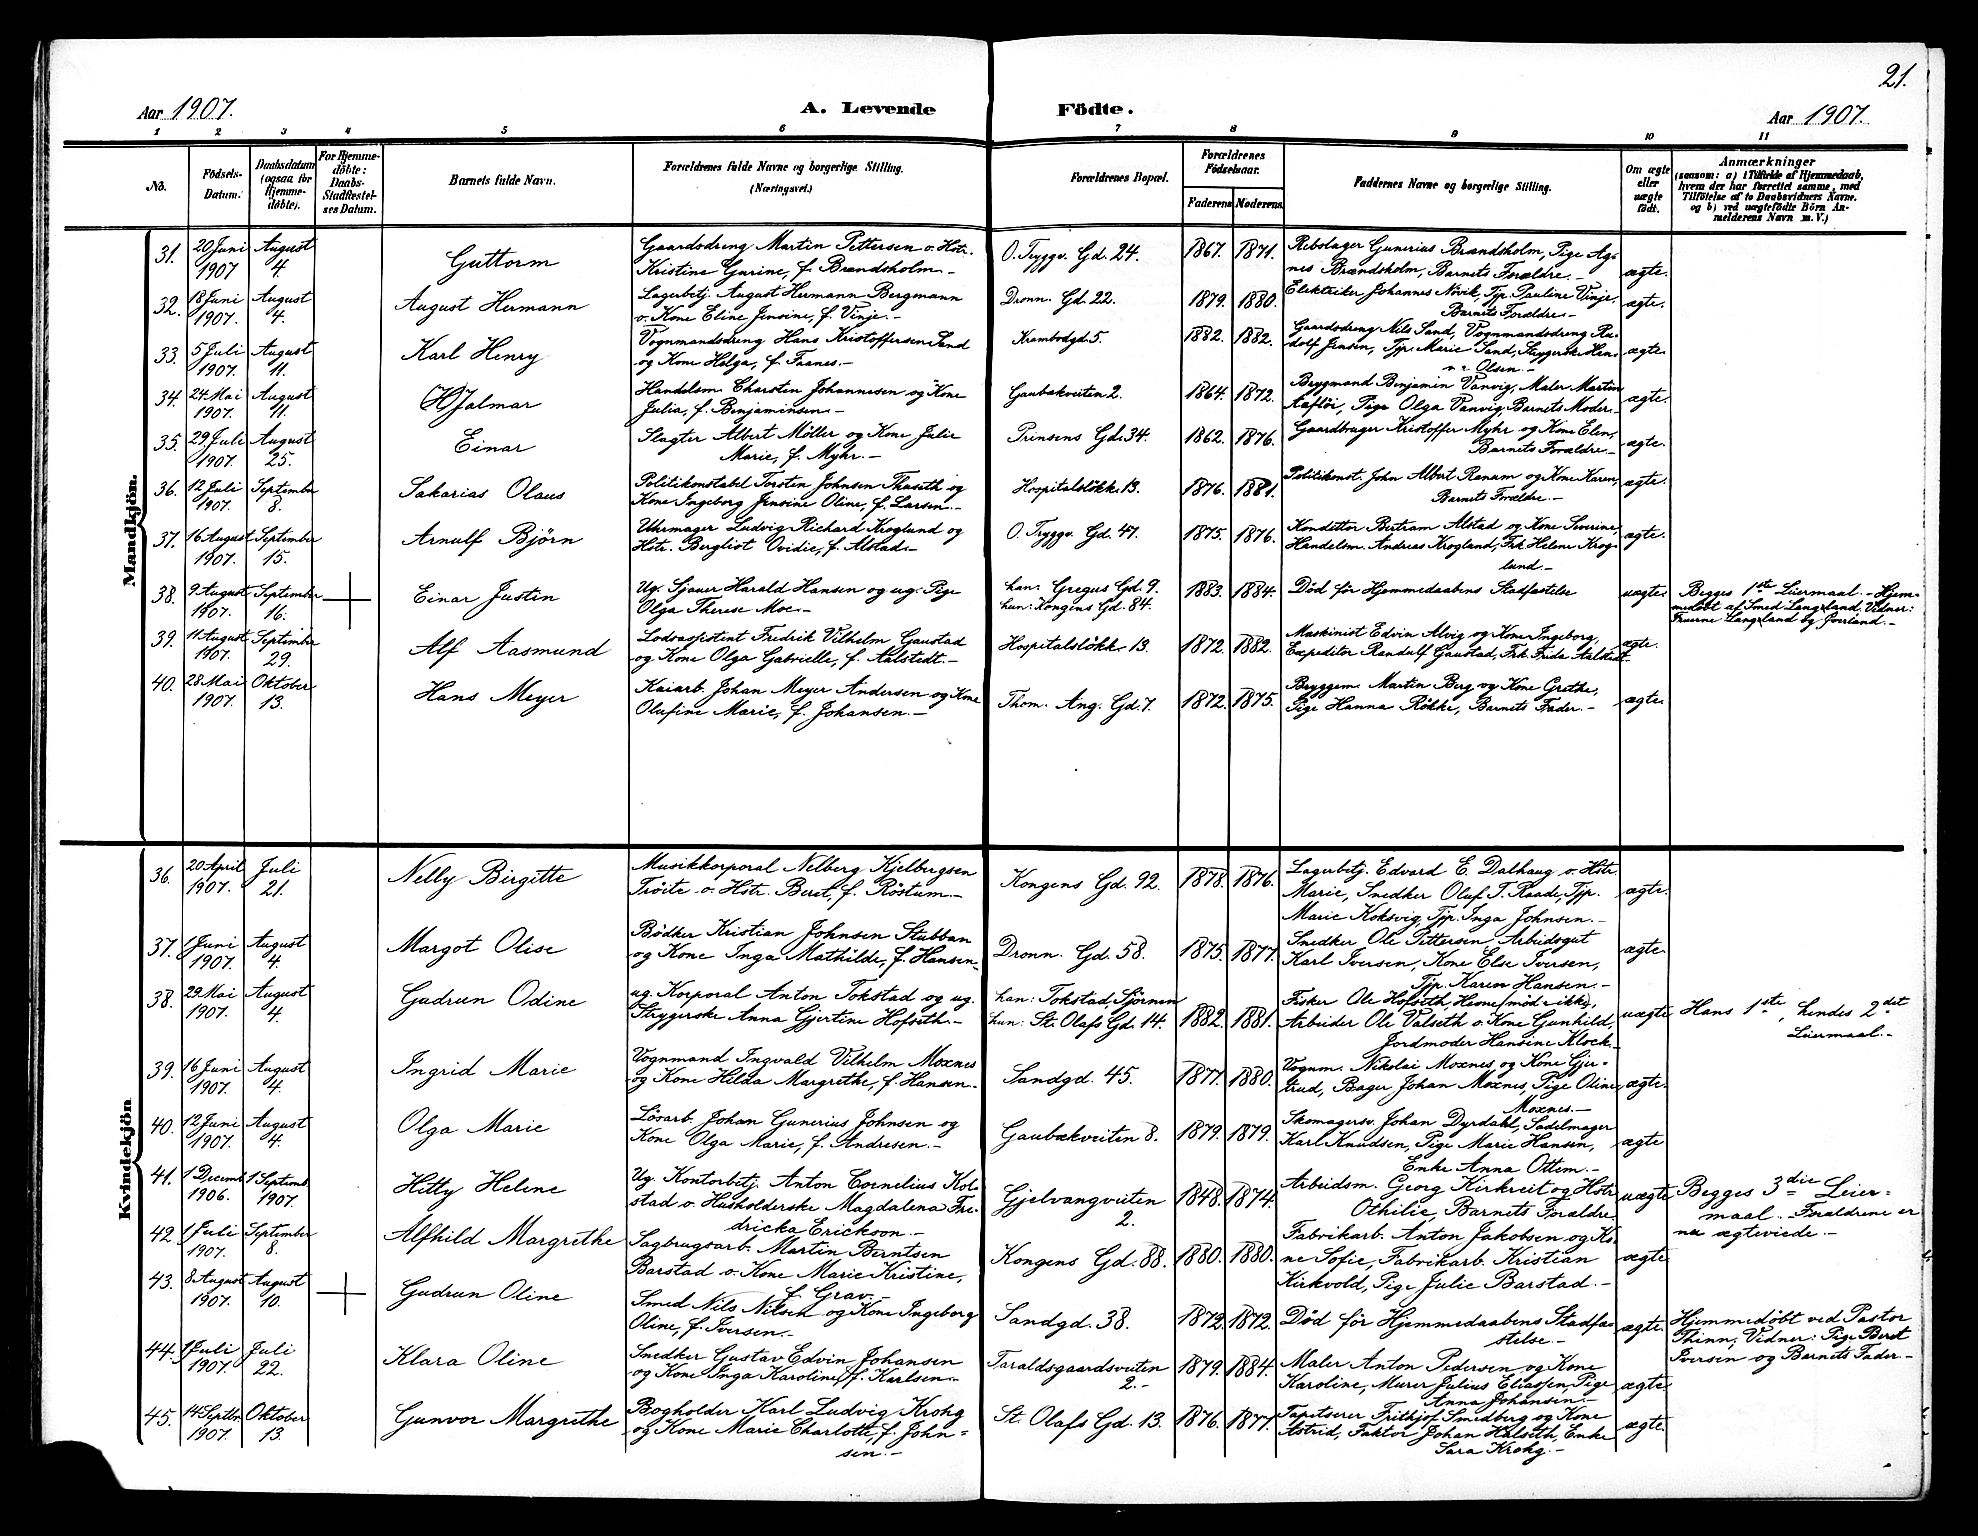 21.
Aar 1907.
A. Levende
Födte.
Aar 1907.
1 2 3 4 5 6 7 8 9 10 11
No.
Födsels-
Datum.
Daabsdatum
(ogsaa for
Hjemme-
døbte).
For Hjemme-
döbte:
Daabs-
Stadfæstel-
ses Datum.
Barnets fulde Navn.
Forældrenes fulde Navne og borgerlige Stilling.
(Næringsvei.)
Forældrenes Bopæl.
Forældrenes
Födselsaar.
Faderens Moderens
Faddernes Navne og borgerlige Stilling.
Om ægte
eller
uægte
födt.
Anmærkninger
(saasom: a) i Tilfælde af Hjemmedaab,
hvem der har forrettet samme, med
Tilföielse af to Daabsvidners Navne.
og b) ved uægtefödte Börn An-
melderens Navn m. V.)
Mandkjön.
31. 20 Juni 1907 August 4. Guttorm
Gaardsdreng Martin Pettersen o. Hstr.
Kristine Gurine, f. Brændsholm.-
O. Tryggv. Gd. 24. 1867. 1871.
Rebslager Gunerius Brændsholm, Pige Ag-
nes Brændsholm, Barnets Forældre.- ægte.
32. 18 Juni 1907. August 4. August Hermann
Lagerbetj. August Hermann Bergmann
o. Kone Eline Jensine, f. Vinje.-
Dronn. Gd. 22. 1879. 1880.
Elektriker Johannes Növik, Tjp. Pauline Vinje,
Barnets Forældre.- ægte.
33. 5 Juli 1907. August 11. Karl Henry
Vognmandsdreng Hans Kristoffersen Sand
og Kone Helga, f. Faanes.-
Krambodgd. 5. 1882. 1882.
Gaardsdreng Nils Sand, Vognmandsdreng Ru-
dolf Jensen, Tjp. Marie Sand, Strygerske Han-
na Olsen.- ægte.
34. 24 Mai 1907. August 11. Hjalmar
Handelsm. Charsten Johannesen og Kone
Julia, f. Benjaminsen.-
Gaubækveiten 2. 1864. 1872.
Brygmand Benjamin Vanvig, Maler Martin
Aafløi, Pige Olga Vanvig, Barnets Moder.- ægte.
35. 29 Juli 1907. August 25. Einar
Slagter Albert Möller og Kone Julie
Marie, f. Myhr.-
Prinsens Gd. 34. 1862. 1876.
Gaardbruger Kristoffer Myhr og Kone Elen,
Barnets Forældre.- ægte.
36. 12 Juli 1907. September 8. Sakarias Olaus
Politikonstabel Torstin Johnsen Thaseth og
Kone Ingeborg Jensine Oline, f. Larsen.-
Hospitalsløkk. 13. 1876. 1881.
Politikonst. John Albert Ranum og Kone Karen,
Barnets Forældre.- ægte.
37. 16 August 1907. September 15. Arnulf Björn
Uhrmager Ludvig Richard Kroglund og
Hstr. Bergliot Ovidie, f. Alstad.-
O. Tryggv. Gd. 47. 1875. 1876.
Konditor Bertram Alstad og Kone Severine,
Handelsm. Andreas Krogland, Frk. Helene Krog-
lund.- ægte.
38. 9 August 1907. September 16. Einar Justin
Ug. Sjauer Harald Hansen og ug. Pige
Olga Therese Moe.-
han: Gregus Gd. 9.
hun: Kongens Gd. 84. 1883. 1884.
Död før Hjemmedaabens Stadfæstelse uægte.
Begges 1ste Leiermaal.- Hjem-
medøbt af Smed Langeland, Vidner:
Fruerne Langeland og Overland.-
39. 11 August 1907. September 29. Alf Aasmund
Lodsassistent Fredrik Vilhelm Gaustad
og Kone Olga Gabrielle, f. Aalstedt.-
Hospitalsløkk. 13. 1872. 1882.
Maskinist Edvin Alvig og Kone Ingeborg,
Expeditør Randulf Gaustad, Frk. Frida Aalstedt. ægte.
40. 28 Mai 1907. Oktober 13. Hans Meyer
Kaiarb. Johan Meyer Andersen og Kone
Olufine Marie, f. Johansen.-
Thom. Ang. Gd. 7. 1872. 1875.
Bryggem. Martin Berg og Kone Grethe,
Pige Hanna Røkke, Barnets Fader.- ægte.
Kvindekjön
36. 20 April 1907. Juli 21. Nelly Birgitte
Musikkorporal Nelberg Kjelbergsen
Trøite o. Hstr. Beret, f. Röstum.-
Kongens Gd. 92. 1878. 1876.
Lagerbetj. Edvard E. Dalhaug o. Hstr.
Marie, Snedker Oluf T. Raade, Tjp.
Marie Koksvig, Tjp. Inga Johnsen.- ægte.
37. 1 Juni 1907. August 4. Margot Olise
Bödker Kristian Johnsen Stubban
og Kone Inga Mathilde, f. Hansen.-
Dronn. Gd. 58. 1875. 1877.
Snedker Ole Pettersen Arbeidsgut
Karl Iversen, Kone Else Iversen,
Tjp. Karen Hansen.- ægte.
38. 29 Mai 1907. August 4. Gudrun Odine
ug. Korporal Anton Tokstad og ug.
Strygerske Anna Gjertine Hofseth.-
han: Tokstad, Sjörnen
hun: St. Olafs Gd. 14. 1882. 1881.
Fisker Ole Hofseth Hevne (mød. ikke),
Arbeider Ole Valseth o. Kone Gunhild,
Jordmoder Hansine Klock.- uægte
Hans 1ste, hendes 2det
Leiermaal.-
39. 16 Juni 1907. August 4. Ingrid Marie
Vognmand Ingvald Vilhelm Moxnes
og Kone Hilda Margrethe, f. Hansen.-
Sandgd. 45. 1877. 1880.
Vognm. Nikolai Moxnes og Kone Gjer-
trud, Bager Johan Moxnes, Pige Oline
Moxnes.- ægte.
40. 12 Juni 1907. August 4. Olga Marie
Lösarb. Johan Gunerius Johnsen og
Kone Olga Marie, f. Andresen.-
Gaubækveiten 8. 1879. 1879.
Skomagersv. Johan Dyrdahl, Sadelmager
Karl Knudsen, Pige Marie Hansen,
Enke Anna Ottem.- ægte
41. 1 Decemb. 1906. 1 Septemb. 1907. Hitty Helene
Ug. Kontorbetj. Anton Cornelius Kol-
stad o. Husholderske Magdalena Fre-
dricka Erickson.-
Gjelvangveiten
2. 1848. 1874.
Arbeidsm. Georg Kirkreit og Hstr
Othilie, Barnets Forældre. uægte
Begges 3die Leier-
maal. Forældrene er
nu ægteviede.-
42. 1 Juli 1907. September 8. Alfhild Margrethe
Sagbrugsarb. Martin Berntsen
Barstad o. Kone Marie Kristine,
f. Grav.-
Kongens Gd. 88. 1880. 1880.
Fabrikarb. Anton Jakobsen og Ko-
ne Sofie, Fabrikarb. Kristian
Kirkvold, Pige Julie Barstad.- ægte
43. 8 August 1907. August 10. Gudrun Oline
Smed Nils Nilsen og Kone Ingeborg
Oline, f. Iversen.-
Sandgd. 38. 1872. 1872.
Död før Hjemmedaabens Stadfæ-
stelse.- ægte.
Hjemmedøbt ved Pastor
Thinn, Vidner: Pige Beret
Iversen og Barnets Fader.-
44. 1 Juli 1907. Juli 22. Klara Oline
Snedker Gustav Edvin Johansen
og Kone Inga Karoline, f. Karlsen.-
Taraldsgaardsveiten
2.- 1879. 1884.
Maler Anton Pedersen og Kone
Karoline, Murer Julius Eliassen, Pige
Anna Johansen.- ægte
45. 14 Septbr. 1907. Oktober 13. Gunvor Margrethe
Bogholder Karl Ludvig Krohg
og Kone Marie Charlotte, f. John-
sen.-
St. Olafs Gd. 13. 1876. 1877.
Tapetserer Frithjof Smedberg og Kone
Astrid, Faktor Johan Halseth, Enke
Sara Krohg.- ægte.